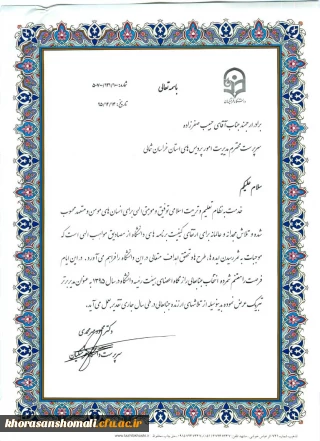 باسمه تعالی
شماره: ۵۰۷۰۰/۹۴۲/۱۰۰
تاریخ: ۹۵/۱۲/۱۴
برادر ارجمند جناب آقای حبیب صفرزاده
سرپرست محترم مدیریت امور پردیس های استان خراسان شمالی
سلام علیکم
خدمت به نظام تعلیم و تربیت اسلامی توفیق و موهبتی الهی برای انسان های مومن و متعهد محسوب
شده و تلاش مجدانه و عالمانه برای ارتقای کیفیت برنامه های دانشگاه از مصادیق مواهب الهی است که
موجبات به ثمر رسیدن ایده ها، طرح ها و تحقق اهداف متعالی در این دانشگاه را فراهم می آورد. در این ایام
فرصت را مغتنم شمرده انتخاب جنابعالی را از نگاه اعضای هیئت رئیسه دانشگاه در سال ۱۳۹۵ به عنوان مدیر برتر
تبریک عرض نموده و بدینوسیله از تلاشهای ارزنده جنابعالی در طی سال جاری تقدیر بعمل می آید.
دکتر محمود مهرمحمدی
سرپرست دانشگاه فرهنگیان
khorasanshomali.cfu.ac.ir